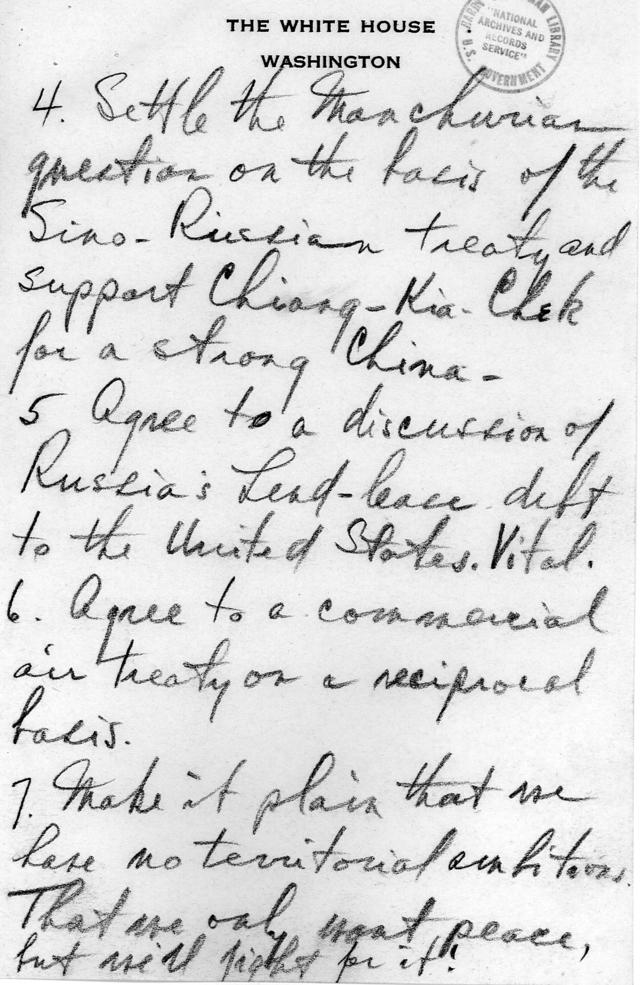 THE WHITE HOUSE
WASHINGTON
"NATIONAL
ARCHIVES AND
RECORDS
SERVICE"
LIBRARY
U.S. GOVERNMENT
4. Settle the Manchurian
question on the basis of the
Sino-Russian treaty and
support Chiang-Kia-Chek
for a strong China-
5 Agree to a discussion of
Russia's Lend-lease debt
to the United States. Vital.
6. Agree to a commercial
air treaty on a reciprocal
basis.
7. Make it plain that we
have no territorial ambitions.
That we only want peace,
but we'll fight for it!